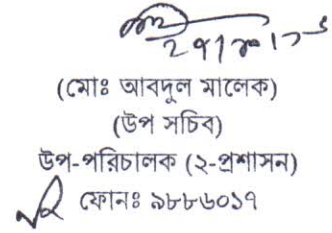 (মোঃ আবদুল মালেক)
(উপ সচিব)
উপ-পরিচালক (২-প্রশাসন)
ফোনঃ ৯৮৮৬০১৭